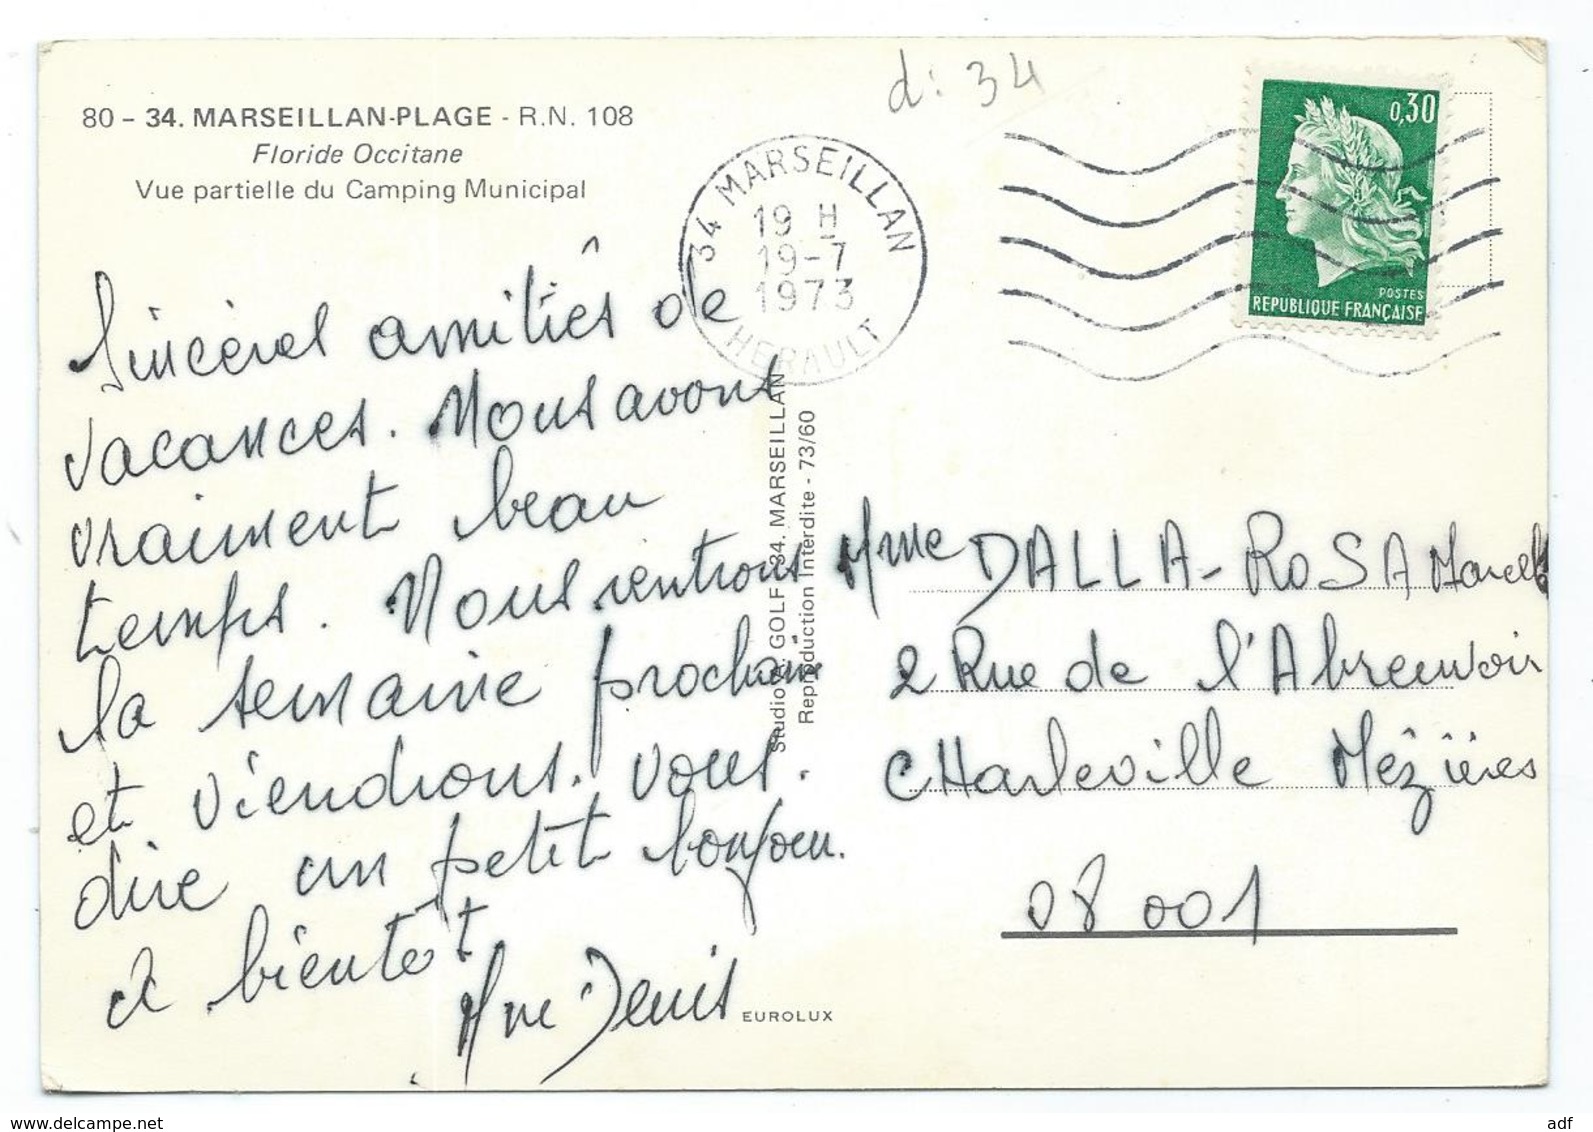 d: 34
80 - 34. MARSEILLAN-PLAGE - R.N. 108
Floride Occitane
Vue partielle du Camping Municipal
34 MARSEILLAN
19 H
19-7
1973
HERAULT
0,30
POSTES
REPUBLIQUE FRANÇAISE
Sincères amitiés de
vacances. Nous avons
vraiment beau
temps. Nous rentrons
la semaine prochaine
et viendrons vous.
dire un petit bonjour.
à bientôt
Mme Denis
Studio A. GOLF 34. MARSEILLAN
Reproduction Interdite - 73/60
EUROLUX
Mme DALLA-ROSA Marcel
2 Rue de l'Abreuvoir
CHarleville Mézières
08 001
www.delcampe.net
adf